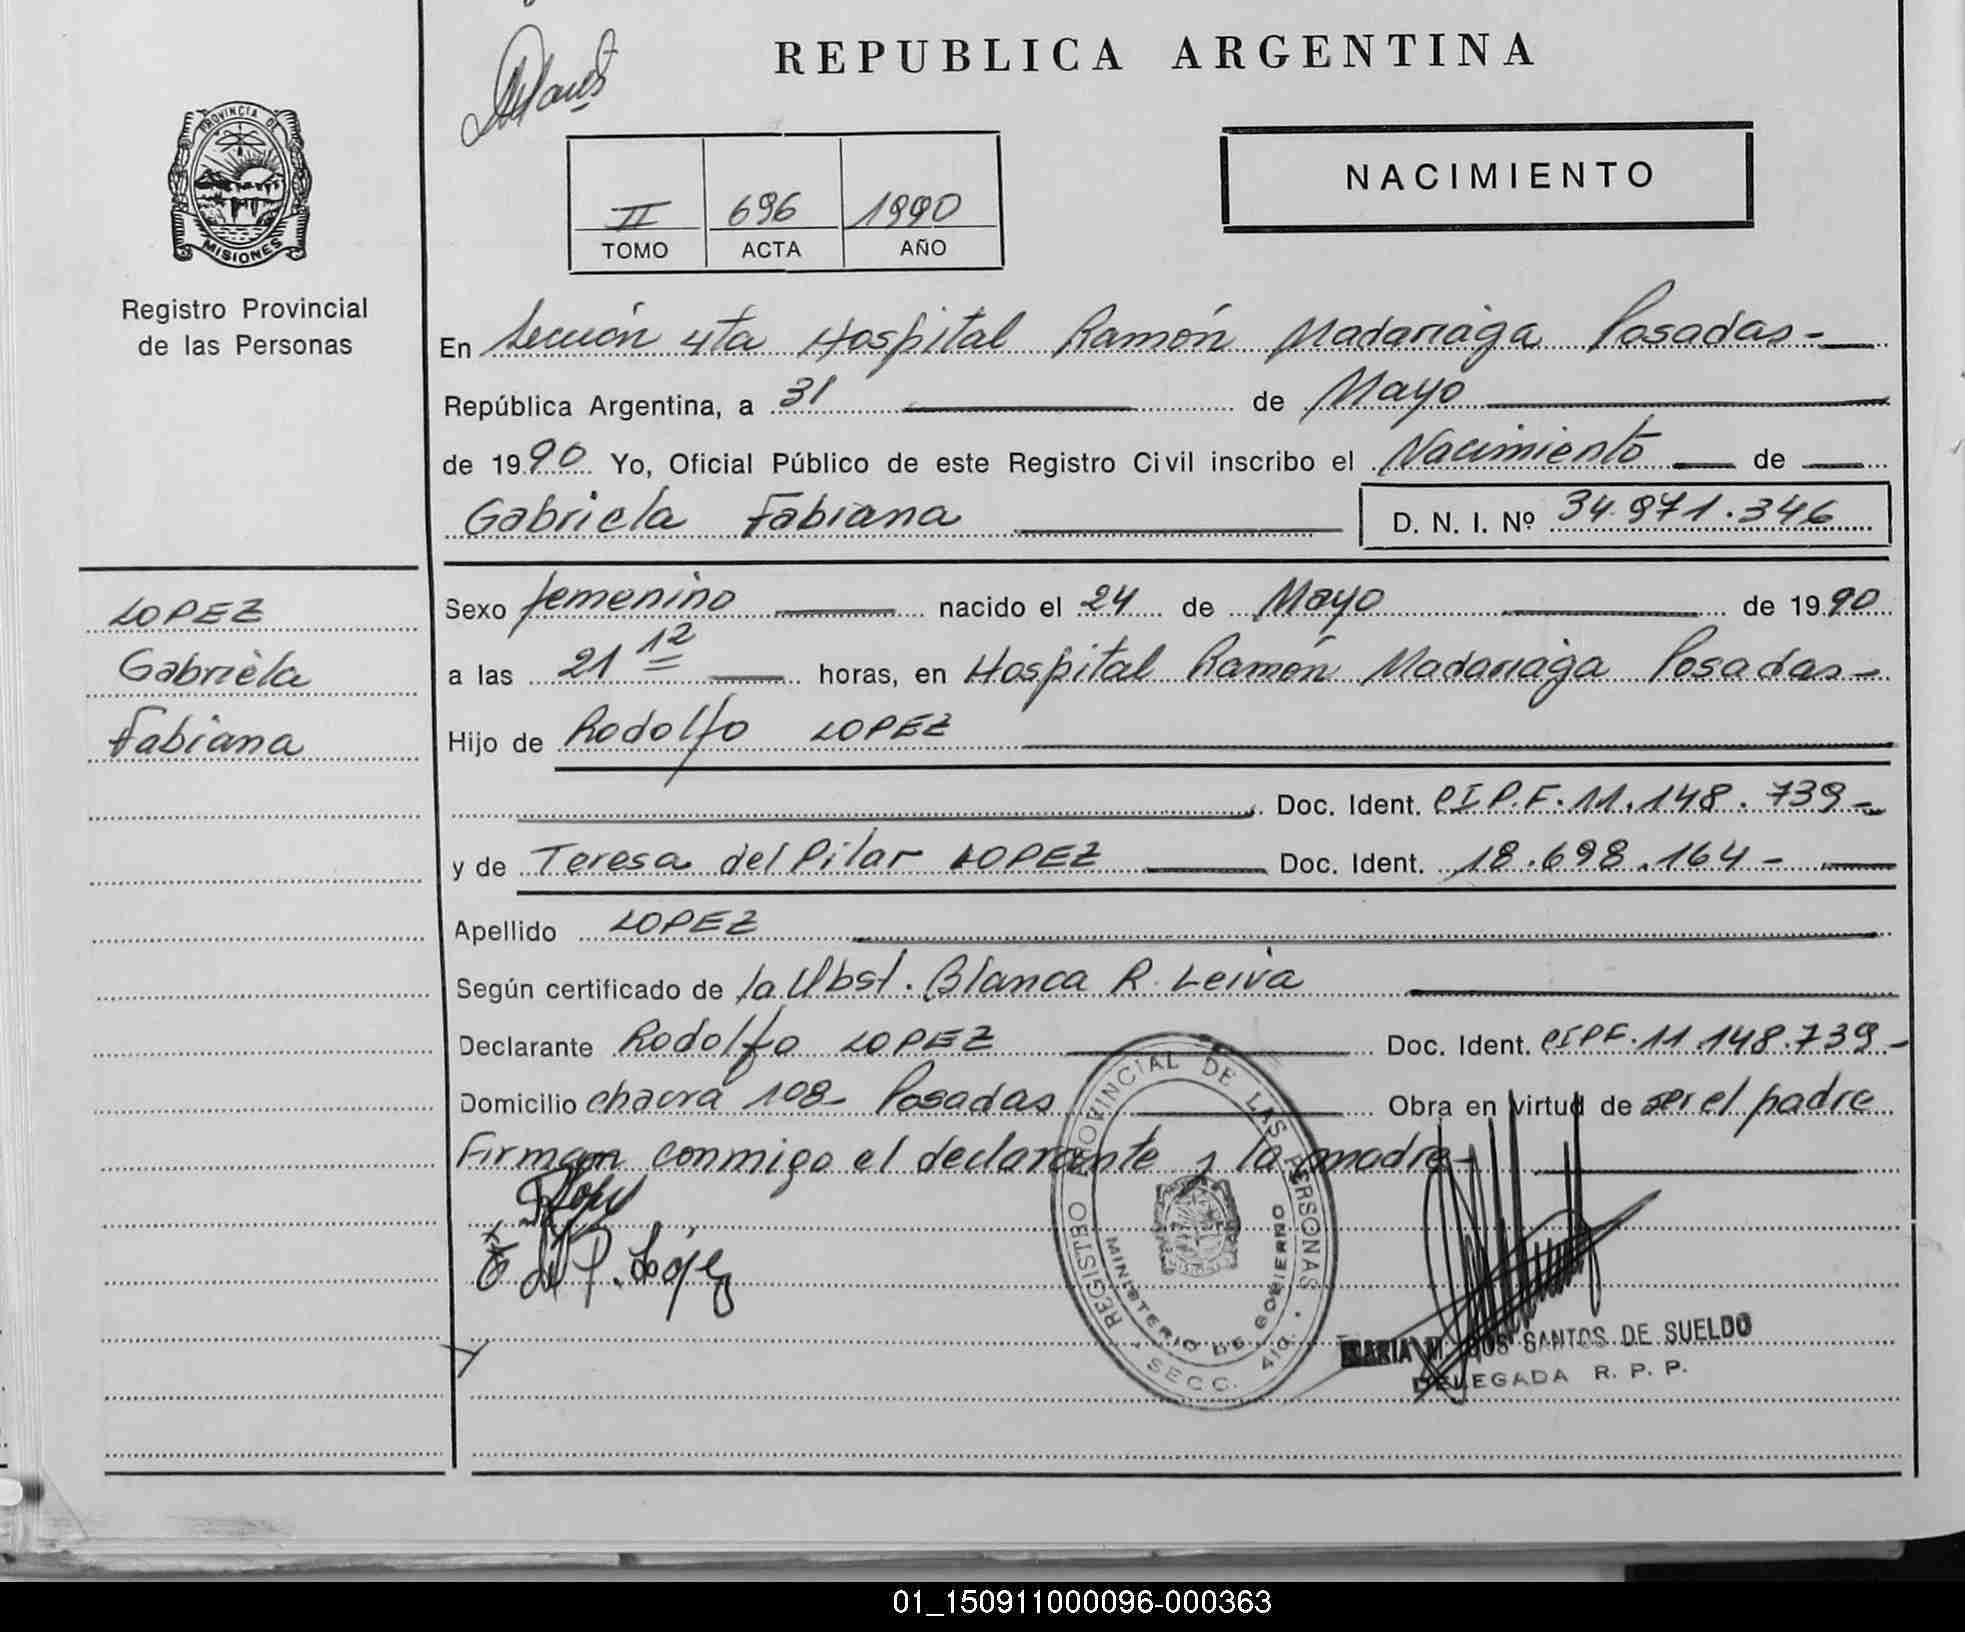 REPUBLICA ARGENTINA
PROVINCIA DE
MISIONES
Registro Provincial
de las Personas
NACIMIENTO
II 696 1990
TOMO ACTA AÑO
En Sección 4ta Hospital Ramón Madariaga Posadas-
República Argentina, a 31 de Mayo
de 1990 Yo, Oficial Público de este Registro Civil inscribo el Nacimiento de
Gabriela Fabiana D. N. I. Nº 34.971.346
LOPEZ
Gabriela
Fabiana
Sexo femenino nacido el 24 de Mayo de 1990
a las 21 12 horas, en Hospital Ramón Madariaga Posadas-
Hijo de Rodolfo LOPEZ
Doc. Ident. CIPF. 11.148.739-
y de Teresa del Pilar LOPEZ Doc. Ident. 18.698.164-
Apellido LOPEZ
Según certificado de la Obst. Blanca R. Leiva
Declarante Rodolfo LOPEZ Doc. Ident. CIPF. 11.148.739-
Domicilio chacra 108- Posadas Obra en virtud de ser el padre
Firman conmigo el declarante y la madre-
T del P. López
REGISTRO PROVINCIAL DE LAS PERSONAS
MINISTERIO DE GOBIERNO
SECC. 4ta.
MARIA M. DOS SANTOS DE SUELDO
DELEGADA R. P. P.
01_150911000096-000363